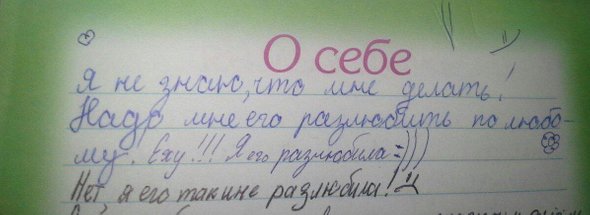 О себе
Я не знаю, что мне делать!
Надо мне его разлюбить по любо-
му. Еху!!! Я его разлюбила=)))
Нет, я его так и не разлюбила!